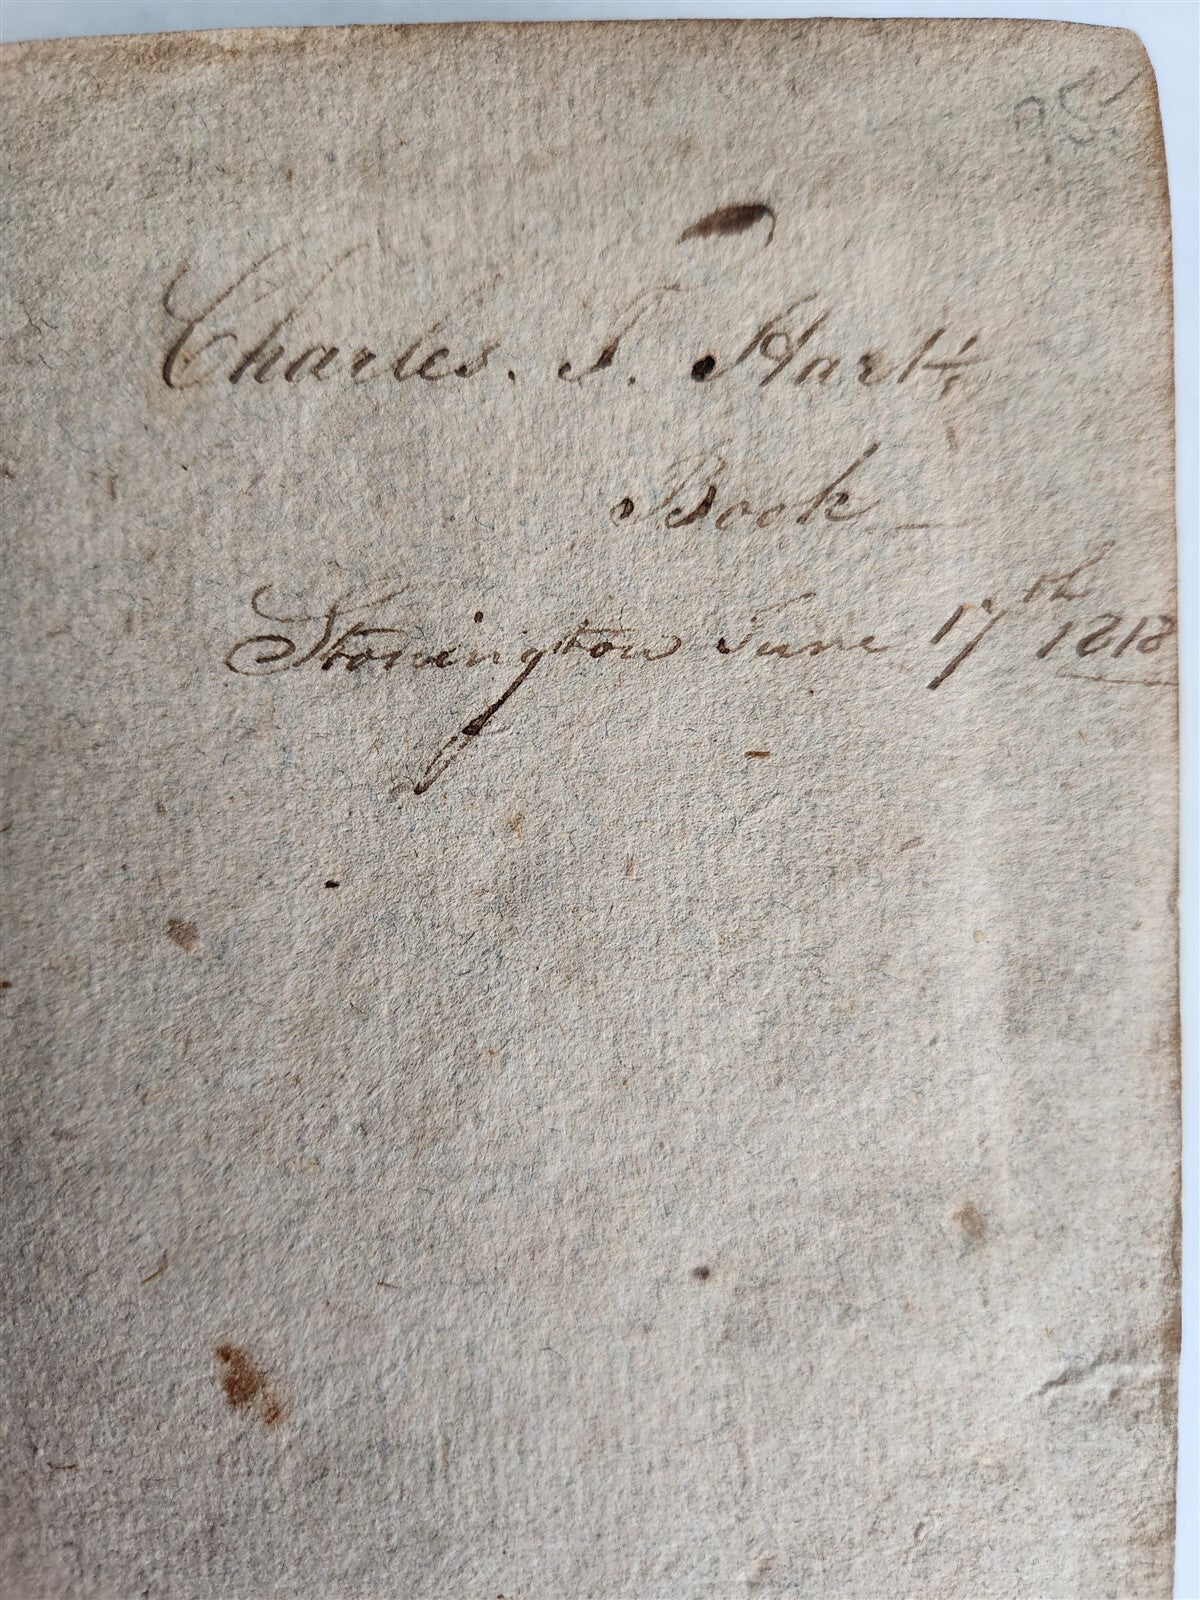 Charles. T. Hart
Book
Stonington June 17th 1818